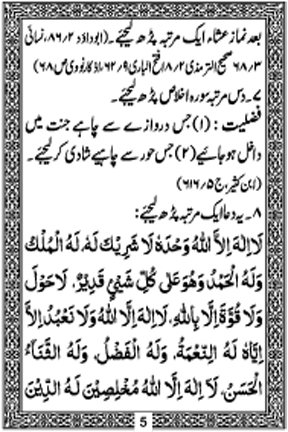 بعد نماز عشاء ایک مرتبہ پڑھ لیجئے۔ (ابوداؤد ۸۶/۲، نسائی
۶۸/۳ صحیح الترمذی ۸/۲ فتح الباری ۶۲/۹، اذکار نووی ص ۶۸)
۷۔ دس مرتبہ سورہ اخلاص پڑھ لیجئے۔
فضلیت : (۱) جس دروازے سے چاہے جنت میں
داخل ہوجائیے (۲) جس حور سے چاہیے شادی کر لیجئے۔
(ابن کثیر، ج ۵/۶۱۶)
۸۔ یہ دعا ایک مرتبہ پڑھ لیجئے :
لَا اِلٰهَ اِلَّا اللّٰهُ وَحْدَهٗ لَا شَرِيْكَ لَهٗ، لَهُ الْمُلْكُ
وَلَهُ الْحَمْدُ وَهُوَ عَلٰى كُلِّ شَيْئٍ قَدِيْرٌ، لَاحَوْلَ
وَلَا قُوَّةَ اِلَّا بِاللّٰهِ، لَا اِلٰهَ اِلَّا اللّٰهُ وَلَا نَعْبُدُ اِلَّا
اِيَّاهُ لَهُ النِّعْمَةُ، وَلَهُ الْفَضْلُ، وَلَهُ الثَّنَاءُ
الْحَسَنُ، لَا اِلٰهَ اِلَّا اللّٰهُ مُخْلِصِيْنَ لَهُ الدِّيْنَ
5